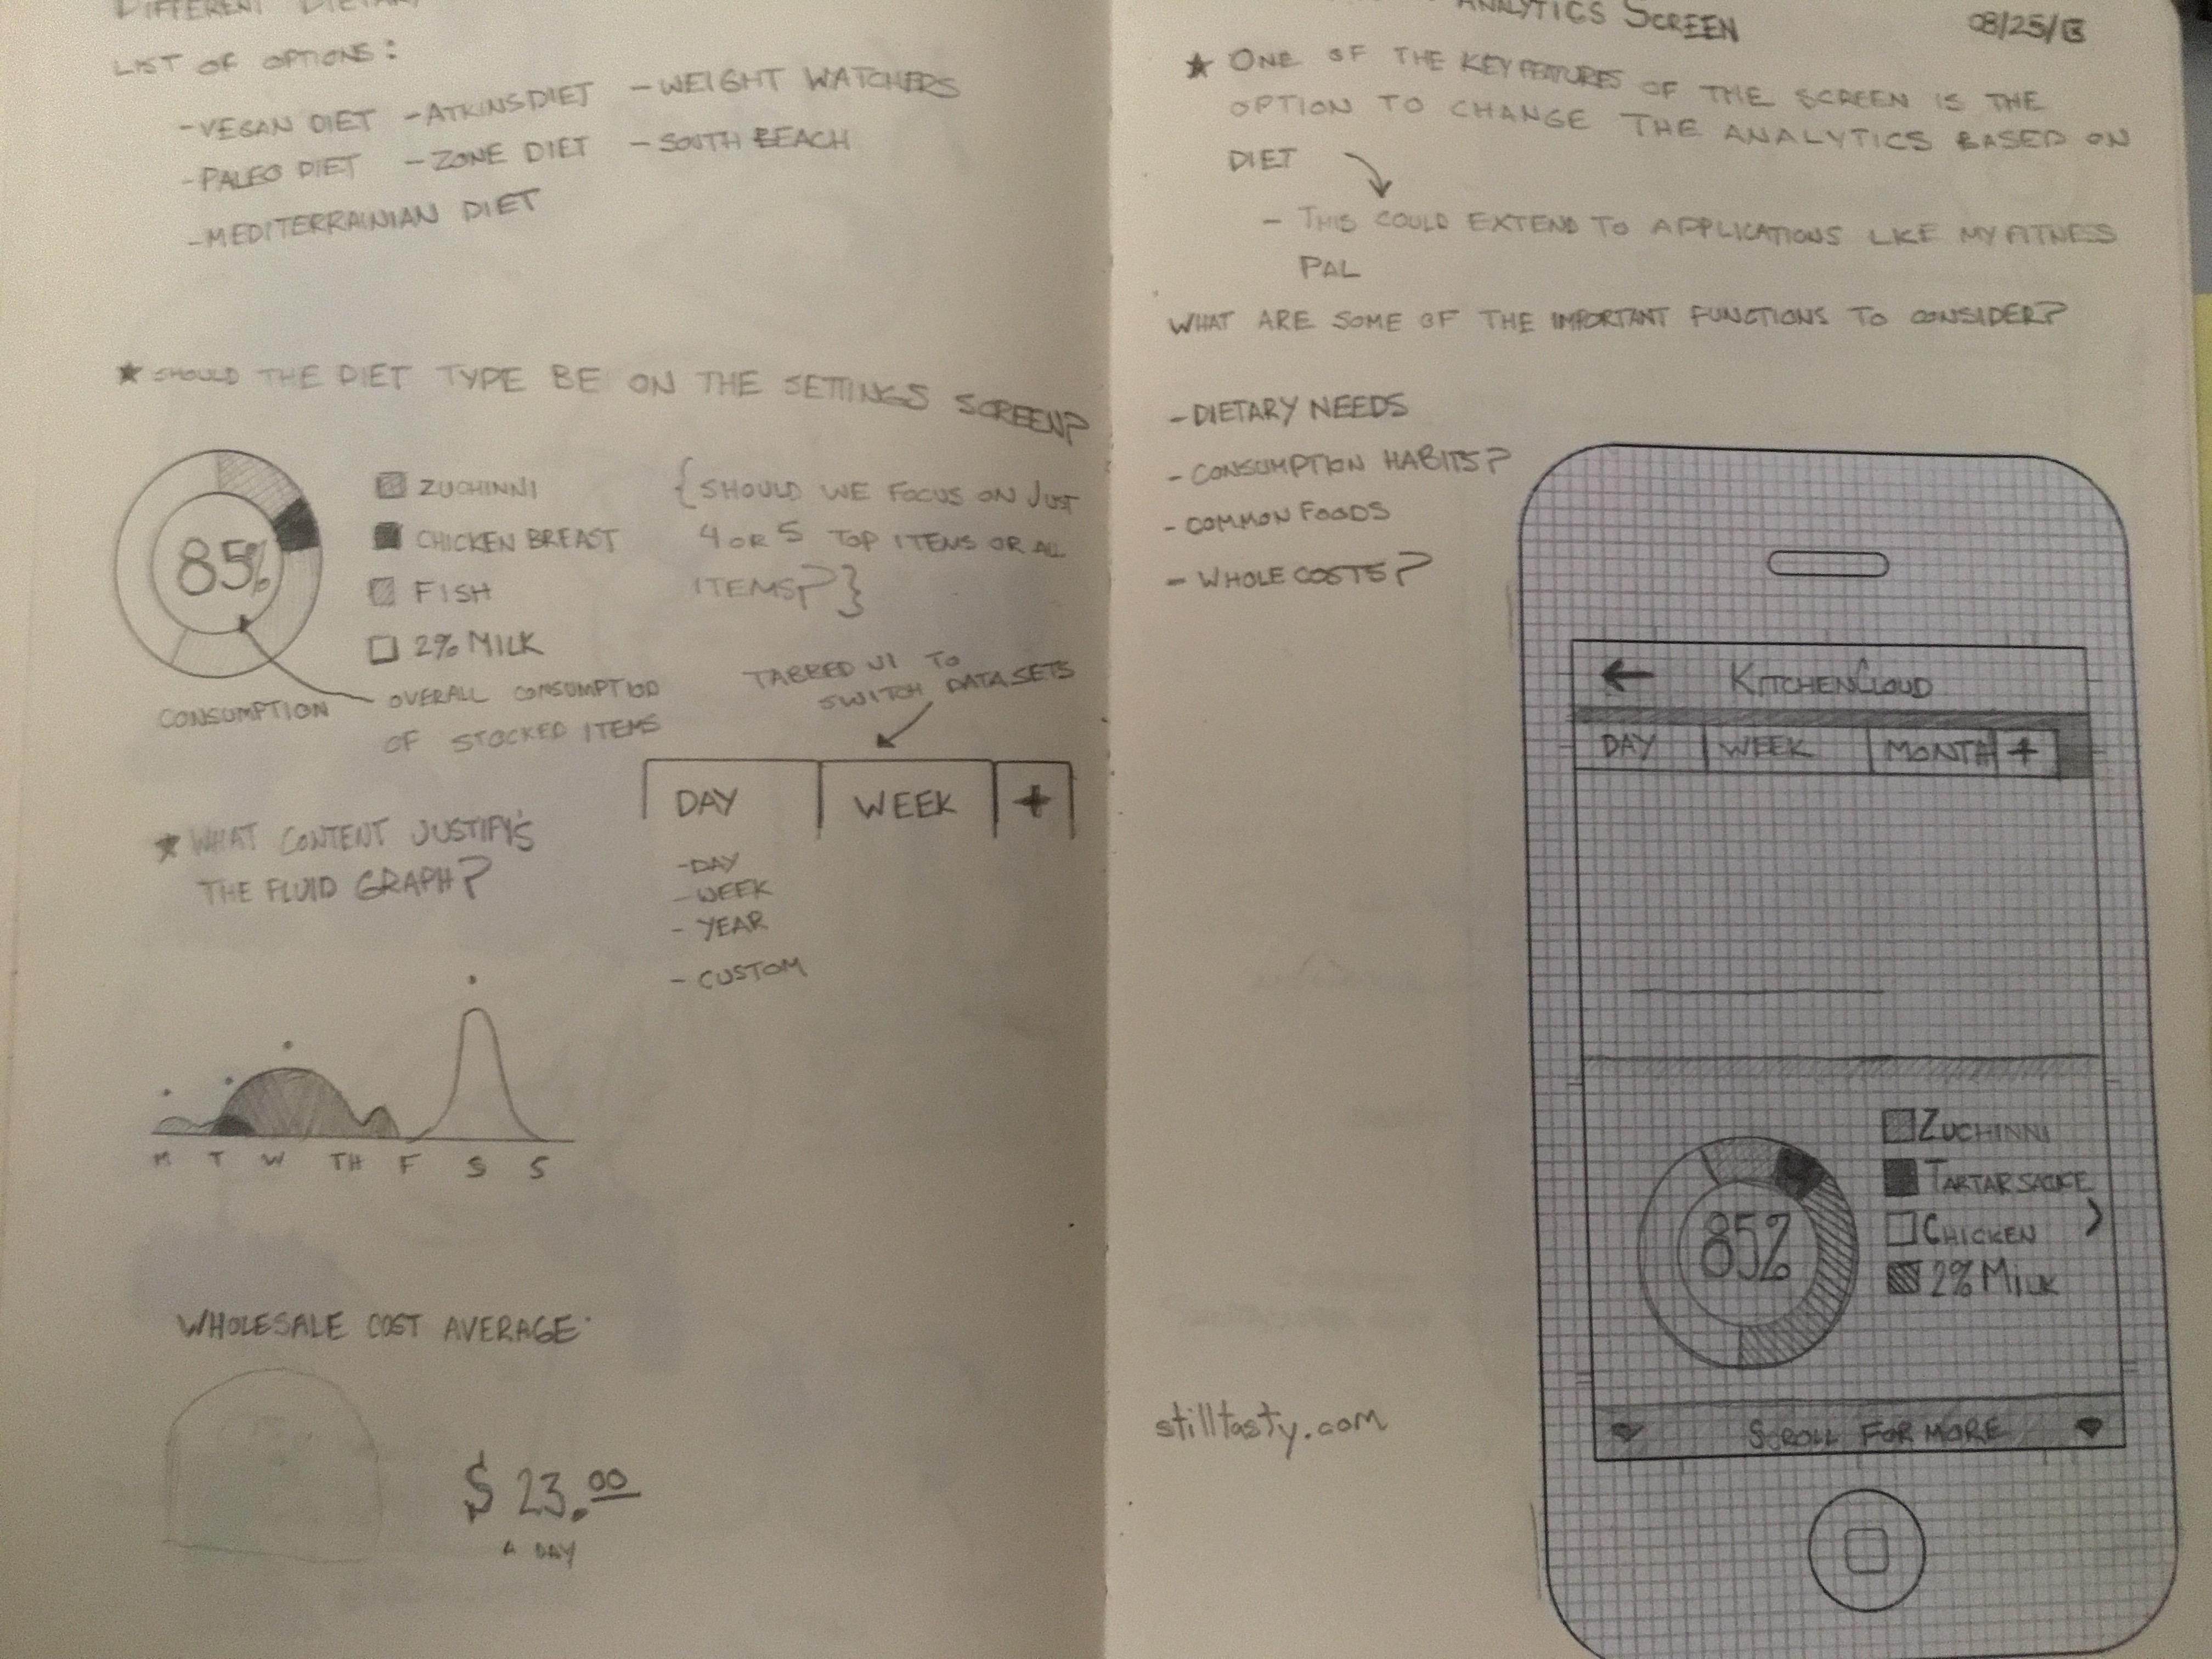 DIFFERENT DIETARY
LIST OF OPTIONS:
-VEGAN DIET -ATKINS DIET -WEIGHT WATCHERS
-PALEO DIET -ZONE DIET -SOUTH BEACH
-MEDITERRAINIAN DIET
★ SHOULD THE DIET TYPE BE ON THE SETTINGS SCREEN?
85%
ZUCHINNI
CHICKEN BREAST
FISH
2% MILK
{SHOULD WE FOCUS ON JUST
4 OR 5 TOP ITEMS OR ALL
ITEMS?}
CONSUMPTION
OVERALL CONSUMPTION
OF STOCKED ITEMS
TABBED UI TO
SWITCH DATASETS
DAY WEEK +
-DAY
-WEEK
-YEAR
-CUSTOM
★ WHAT CONTENT JUSTIFY'S
THE FLUID GRAPH?
M T W TH F S S
WHOLESALE COST AVERAGE:
$ 23.00
A DAY
ANALYTICS SCREEN
08/25/13
★ ONE OF THE KEY FEATURES OF THE SCREEN IS THE
OPTION TO CHANGE THE ANALYTICS BASED ON
DIET
- THIS COULD EXTEND TO APPLICATIONS LIKE MY FITNESS
PAL
WHAT ARE SOME OF THE IMPORTANT FUNCTIONS TO CONSIDER?
-DIETARY NEEDS
-CONSUMPTION HABITS?
-COMMON FOODS
-WHOLE COSTS?
KITCHENCLOUD
DAY WEEK MONTH +
85%
ZUCHINNI
TARTAR SAUCE
CHICKEN
2% MILK
SCROLL FOR MORE
stilltasty.com